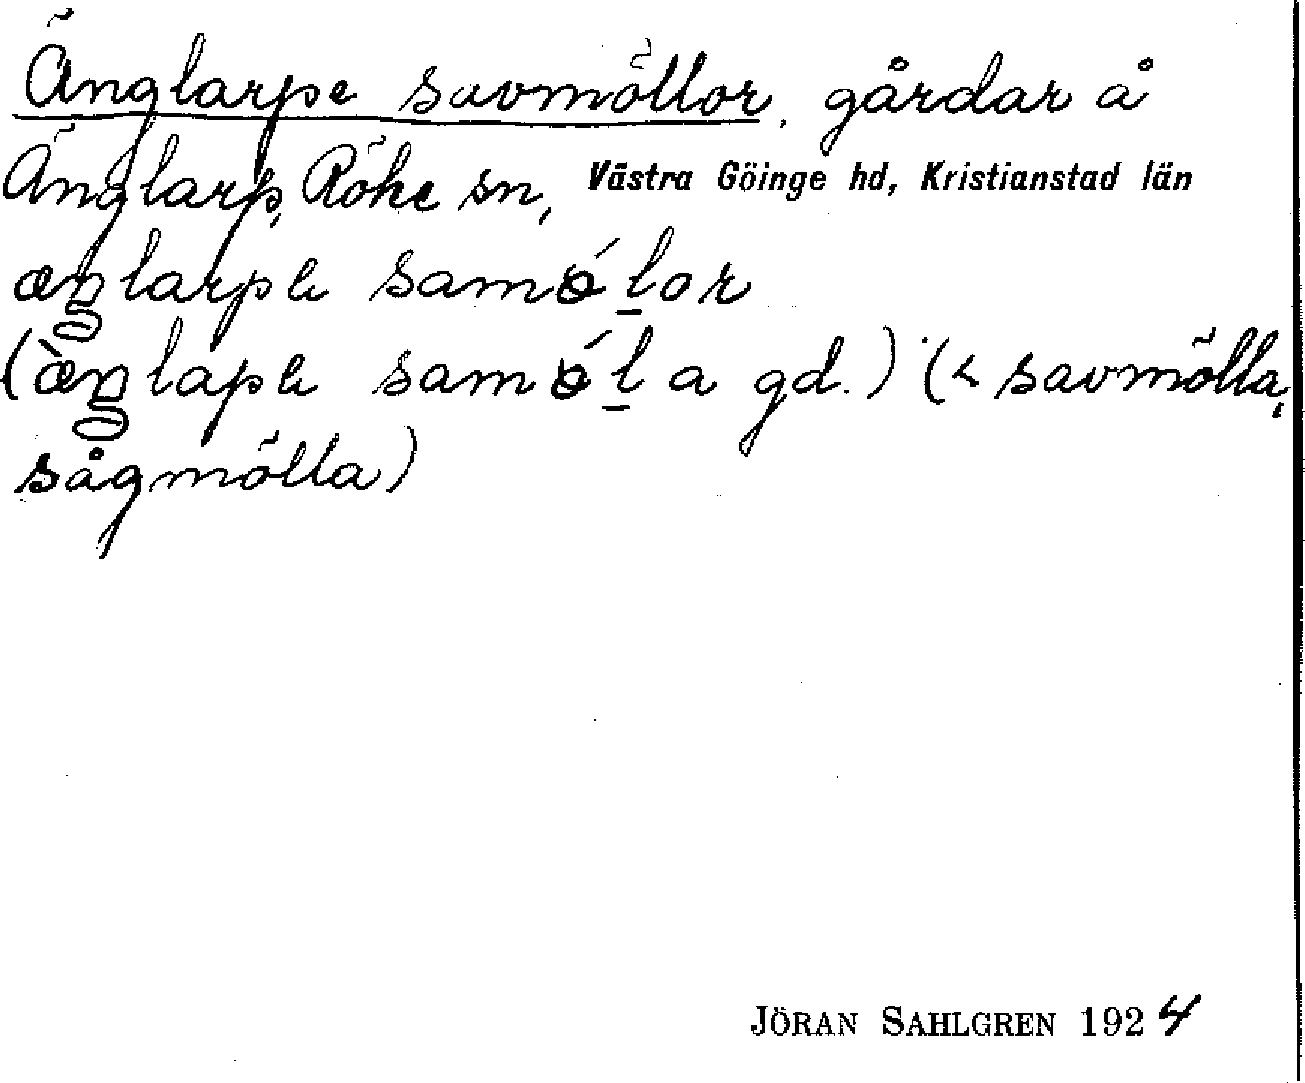 Änglarpe savmöllor, gårdar å
Änglarp, Röke sn, Västra Göinge hd, Kristianstad län
æŋlarpə samǿlor
(æ̀ŋlapə samǿla gd.) (< savmölla,
sågmölla)
JÖRAN SAHLGREN 1924